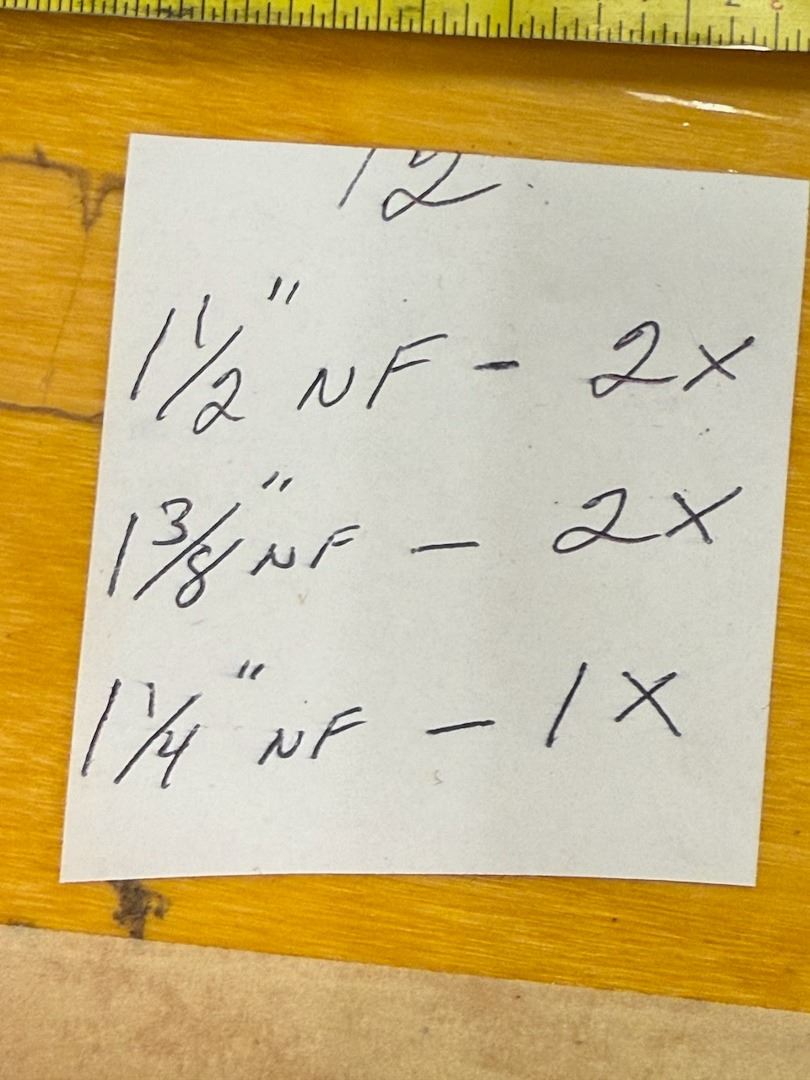 12
1 1/2" NF - 2X
1 3/8" NF - 2X
1 1/4" NF - 1X